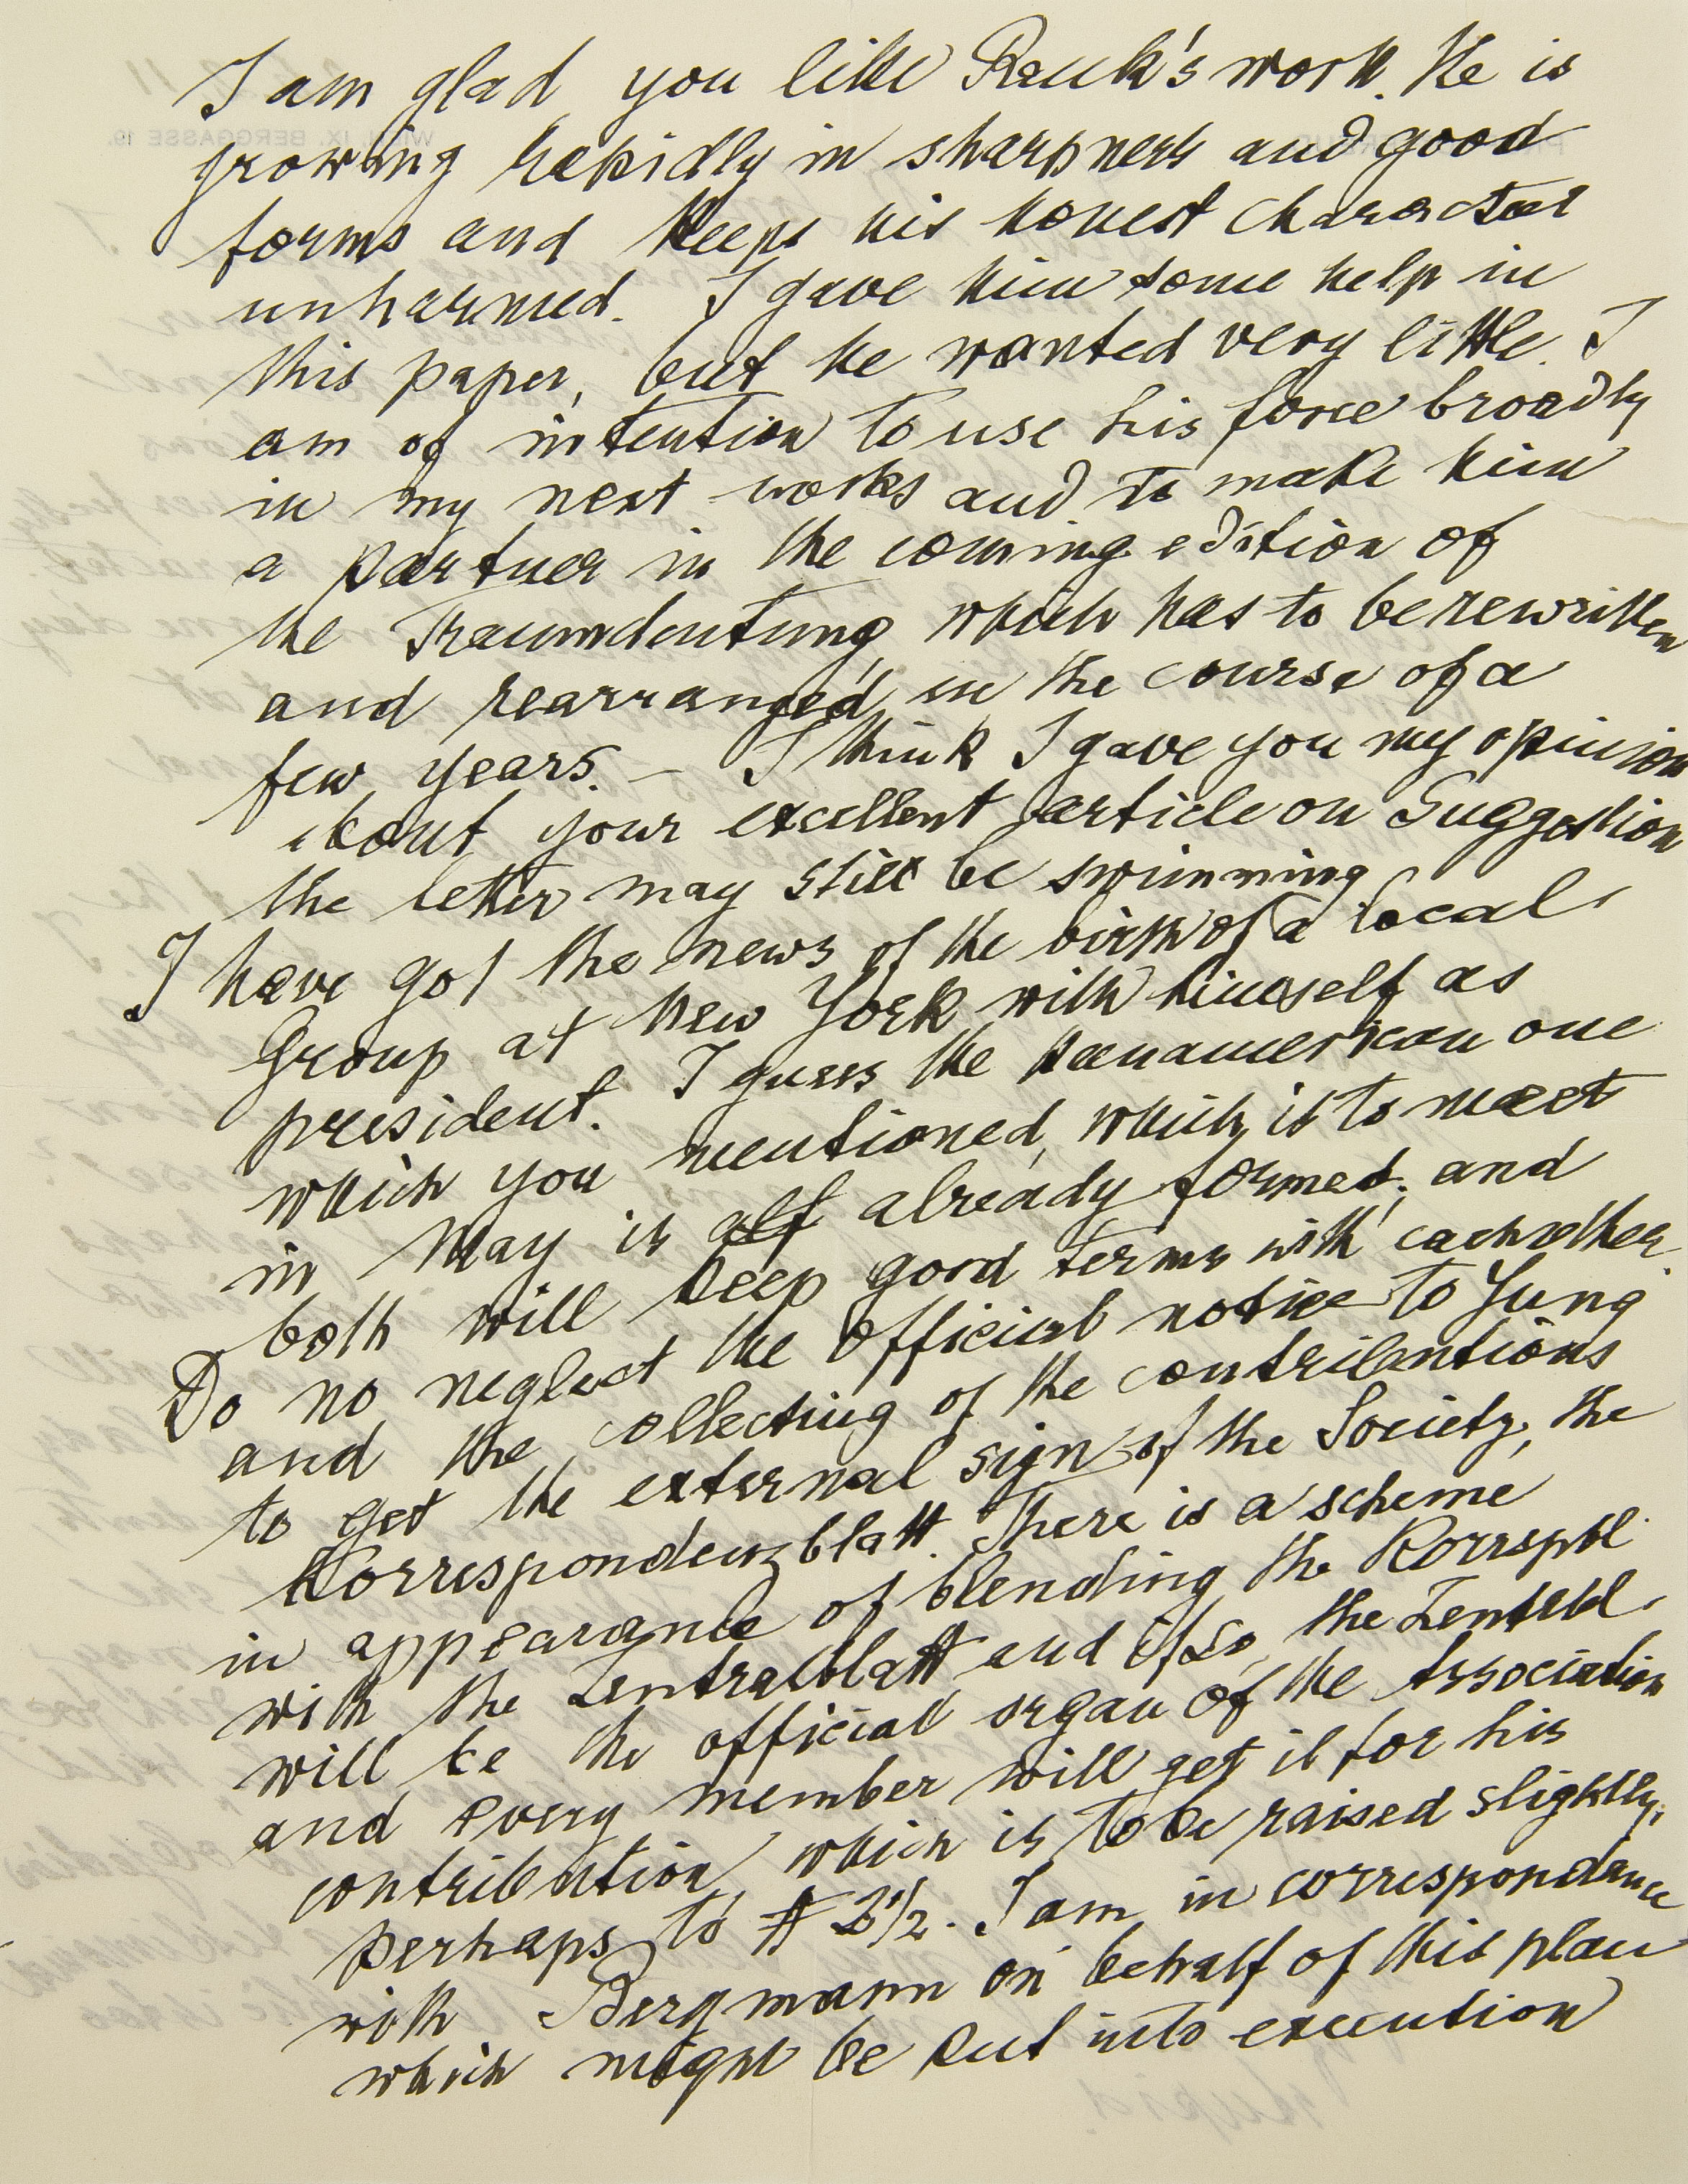 I am glad you like Rank's work. He is
growing rapidly in sharpness and good
forms and keeps his honest character
unharmed. I gave him some help in
this paper, but he wanted very little. I
am of intention to use his force broadly
in my next works and to make him
a partner in the coming edition of
the Traumdeutung which has to be rewritten
and rearranged in the course of a
few years. – I think I gave you my opinion
about your excellent article on Suggestion
the letter may still be swimming
I have got the news of the birth of a local
Group at New York with himself as
president. I guess the panamerican one
which you mentioned, which is to meet
in May is all already formed, and
both will keep good terms with eachother.
Do no neglect the official notice to Jung
and the collecting of the contributions
to get the external sign of the Society, the
Korrespondenzblatt. There is a scheme
in appearance of blending the Korrspbl
with the Zentralblatt and if so, the Zentrbl.
will be the official organ of the Association
and every member will get it for his
contribution, which is to be raised slightly,
perhaps to $ 3 1/2. I am in correspondance
with Bergmann on behalf of this plan
which might be put into execution